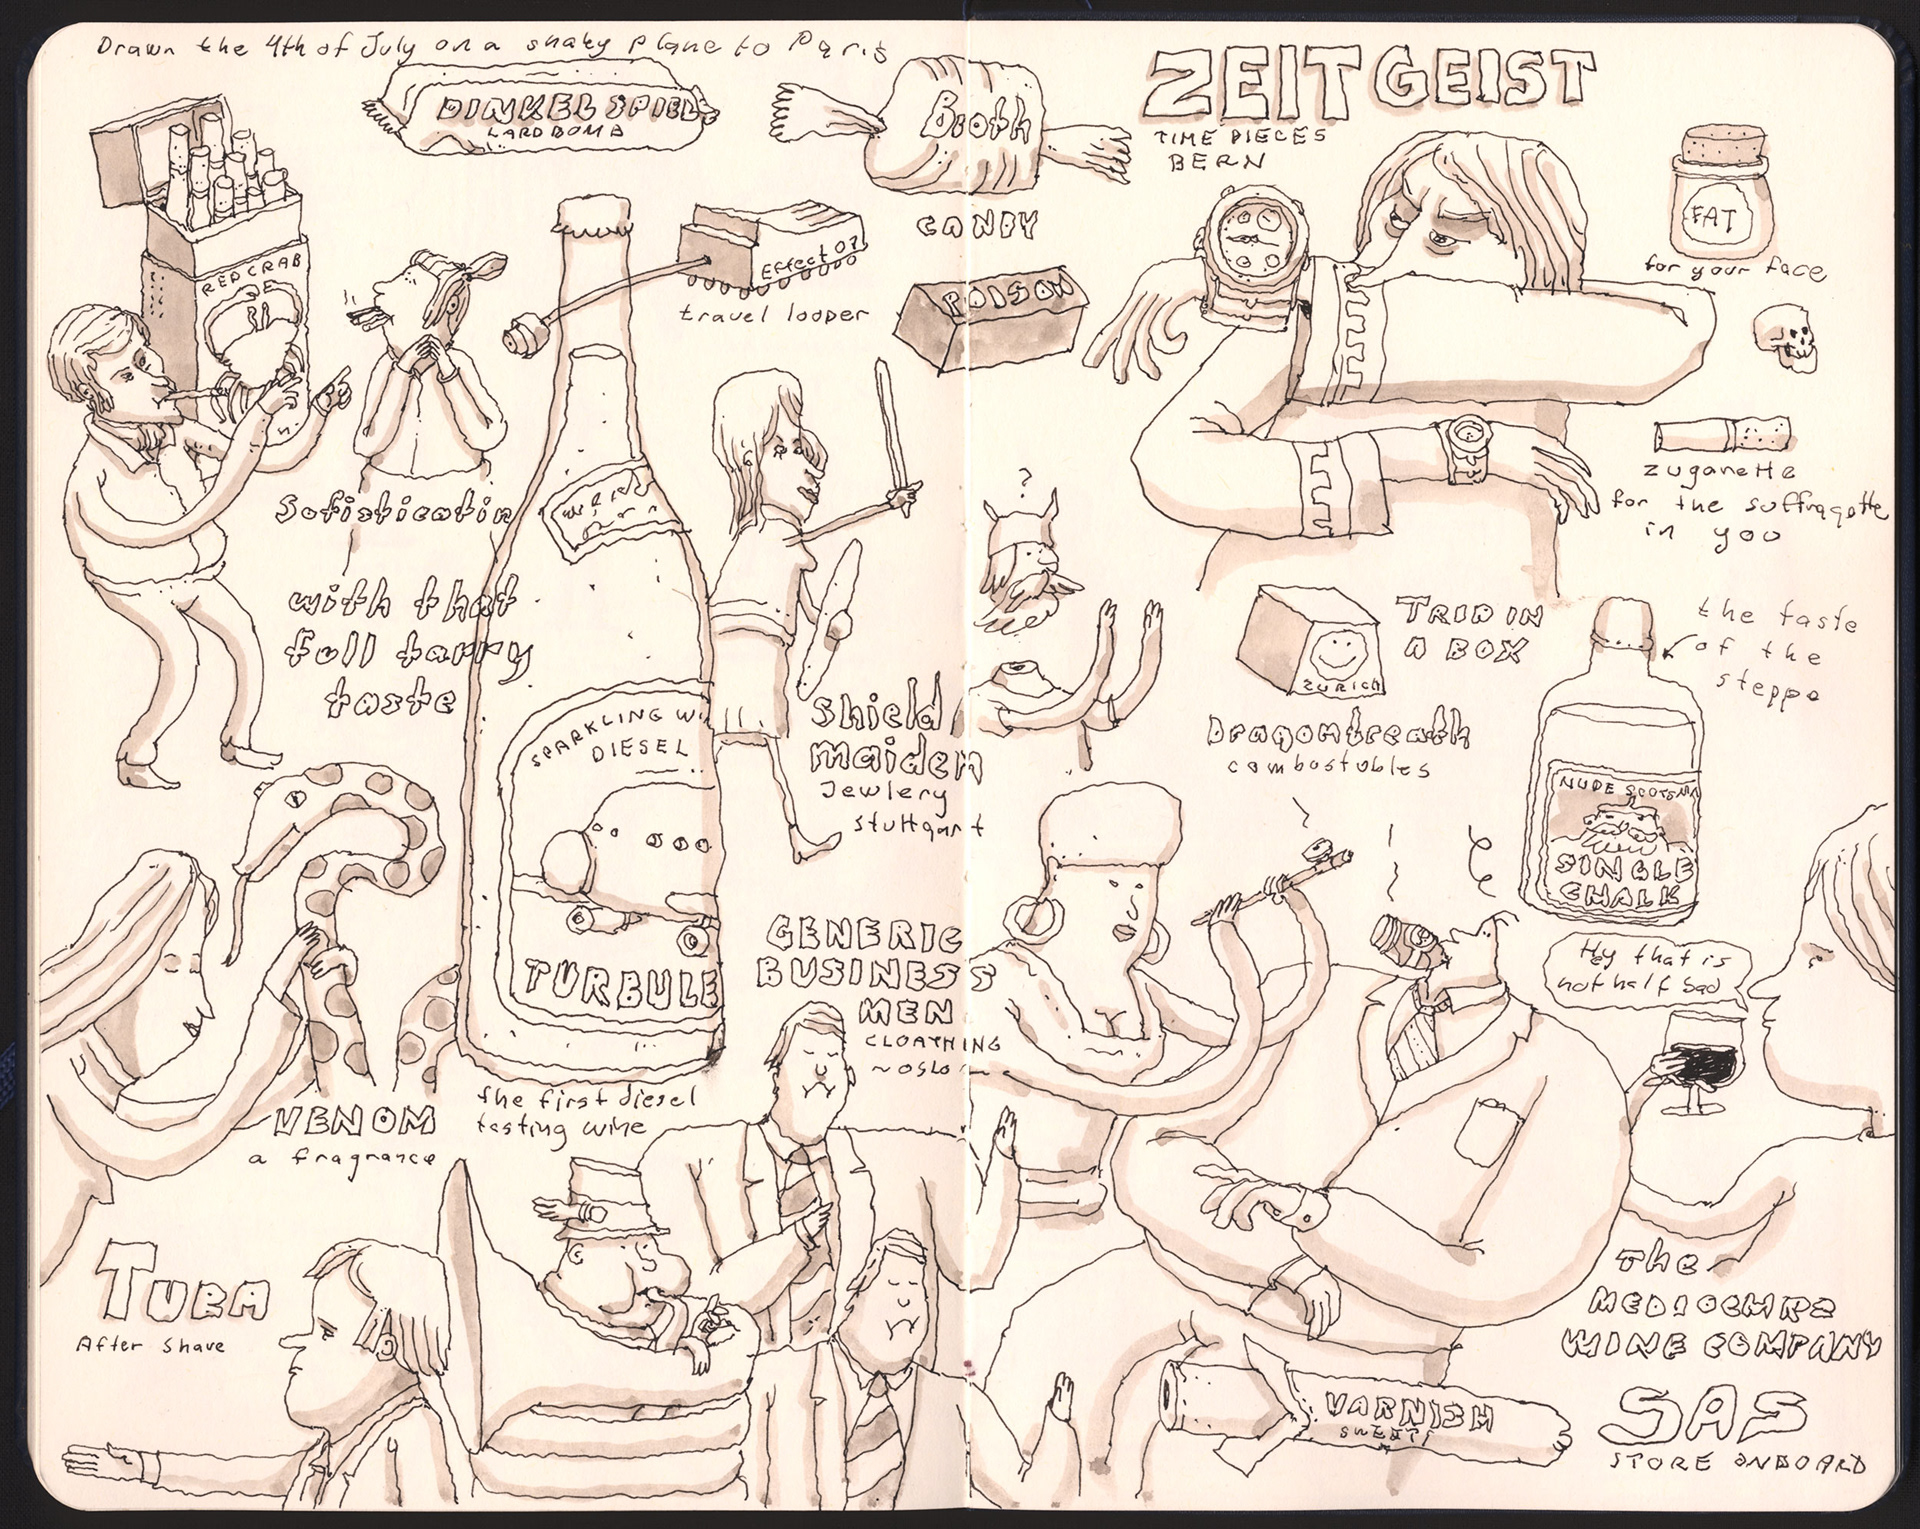 Drawn the 4th of July on a shaky plane to Paris
DINKELSPIEL
LARDBOMB
Broth
CANDY
ZEITGEIST
TIME PIECES
BERN
FAT
for your face
REDCRAB
Effect 07
travel looper
POISON
Sofisticatin
with that
full tarry
taste
zugarette
for the suffragette
in you
?
SPARKLING WI
DIESEL
TURBULE
the first diesel
tasting wine
Shield
maiden
Jewlery
Stuttgart
TRIP IN
A BOX
ZURICH
Dragonbreath
combustobles
the taste
of the
steppe
NUDE SCOTSMA
SINGLE
CHALK
Hey that is
not half bad
GENERIC
BUSINESS
MEN
CLOATHING
~OSLO~
VENOM
a fragrance
TUBA
After Shave
THE
MEDIOCHRE
WINE COMPANY
VARNISH
SWEATS
SAS
STORE ONBOARD